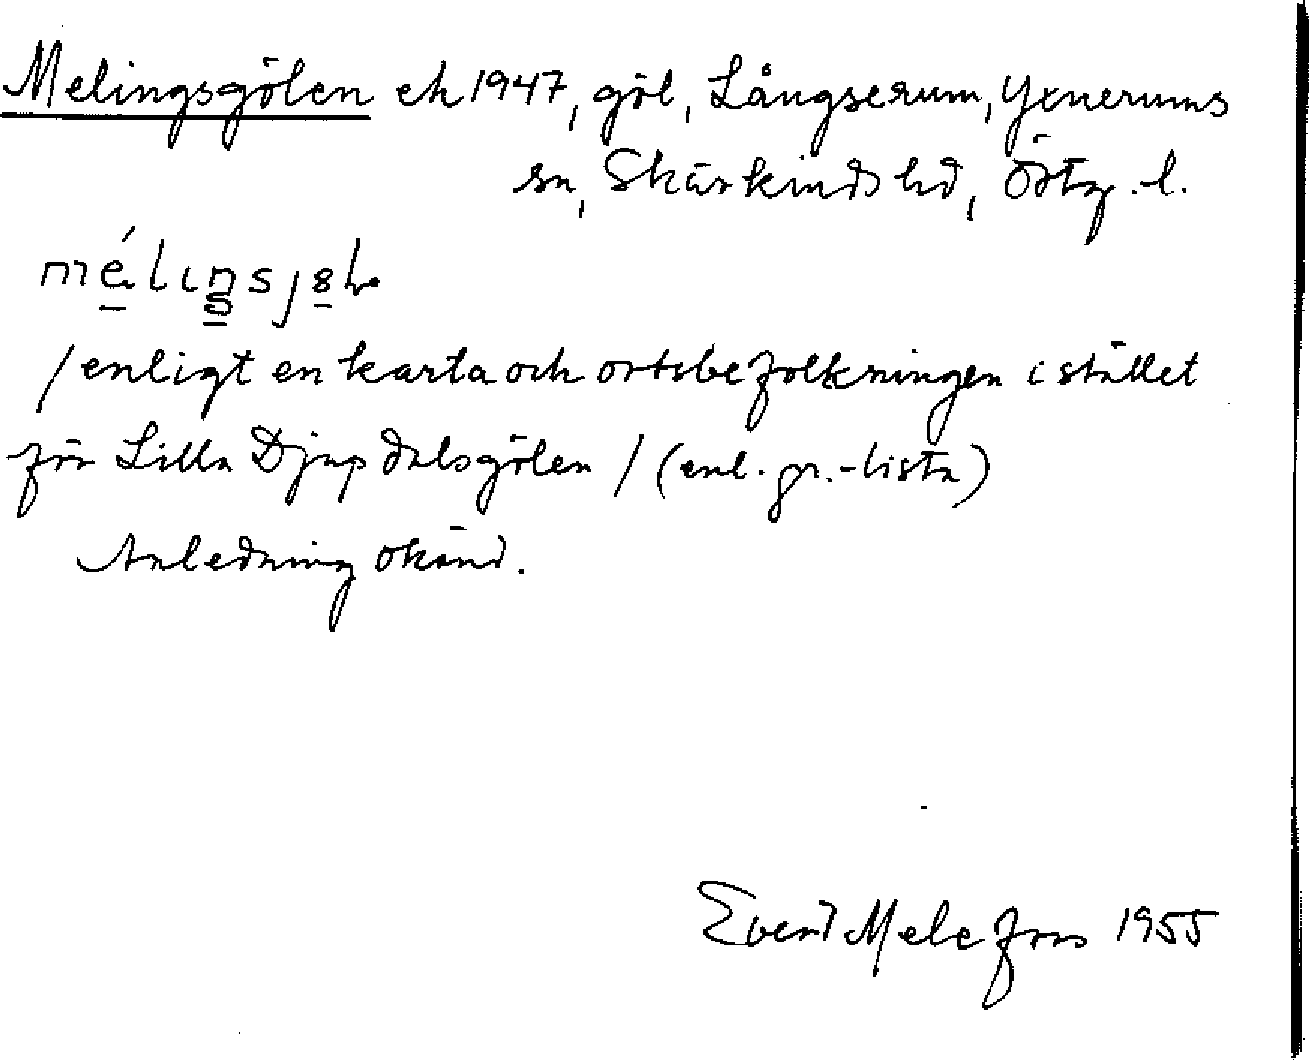 Melingsgölen ek 1947, göl, Långserum, Yxnerums
sn, Skärkinds hd, Östg.-l.
/enligt en karta och ortsbefolkningen i stället
för Lilla Djupdalsgölen / (enl. gr.-lista)
Anledning okänd.
Evert Melefors 1955